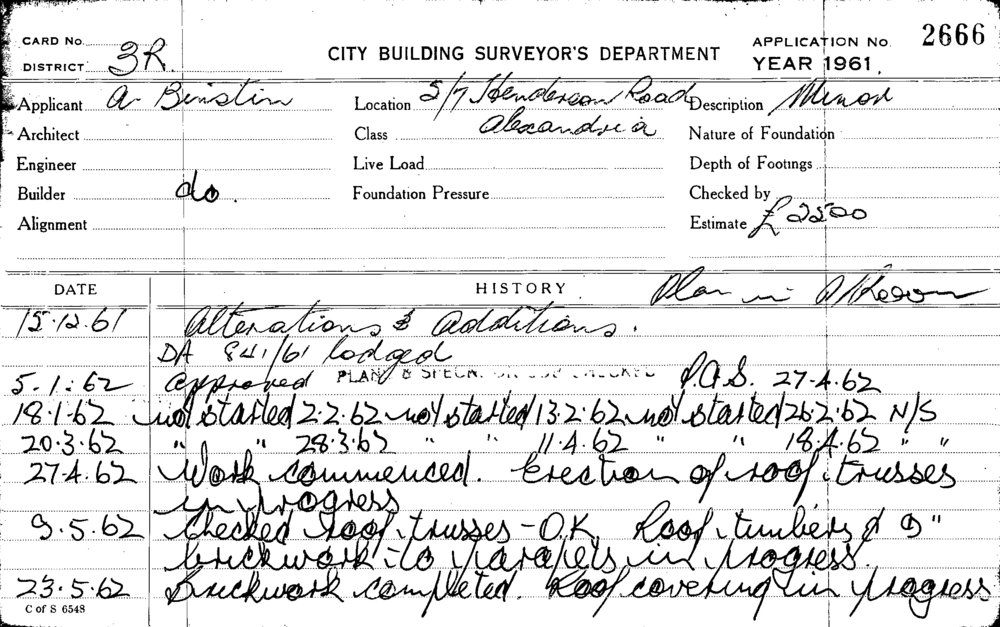 CARD No.
DISTRICT 3R.
CITY BUILDING SURVEYOR'S DEPARTMENT
APPLICATION No. 2666
YEAR 1961
Applicant A. Binstin Location 5/7 Henderson Road Description Minor
Architect Class Alexandria Nature of Foundation
Engineer Live Load Depth of Footings
Builder do. Foundation Pressure Checked by
Alignment Estimate £2500
DATE HISTORY Plan in
15.12.61 Alterations & additions.
DA 841/61 lodged
5.1.62 approved PLAN & SPECN. ON JOB CHECKED P.A.S. 27.4.62
18.1.62 not started 2.2.62 not started 13.2.62 not started 26.2.62 N/S
20.3.62 " " 28.3.62 " " 11.4.62 " " 18.4.62 " "
27.4.62 Work commenced. Erection of roof trusses
in progress
9.5.62 Checked roof trusses - O.K. Roof timbers & 9"
brickwork to parapets in progress.
23.5.62 Brickwork completed. Roof covering in progress
C of S 6548